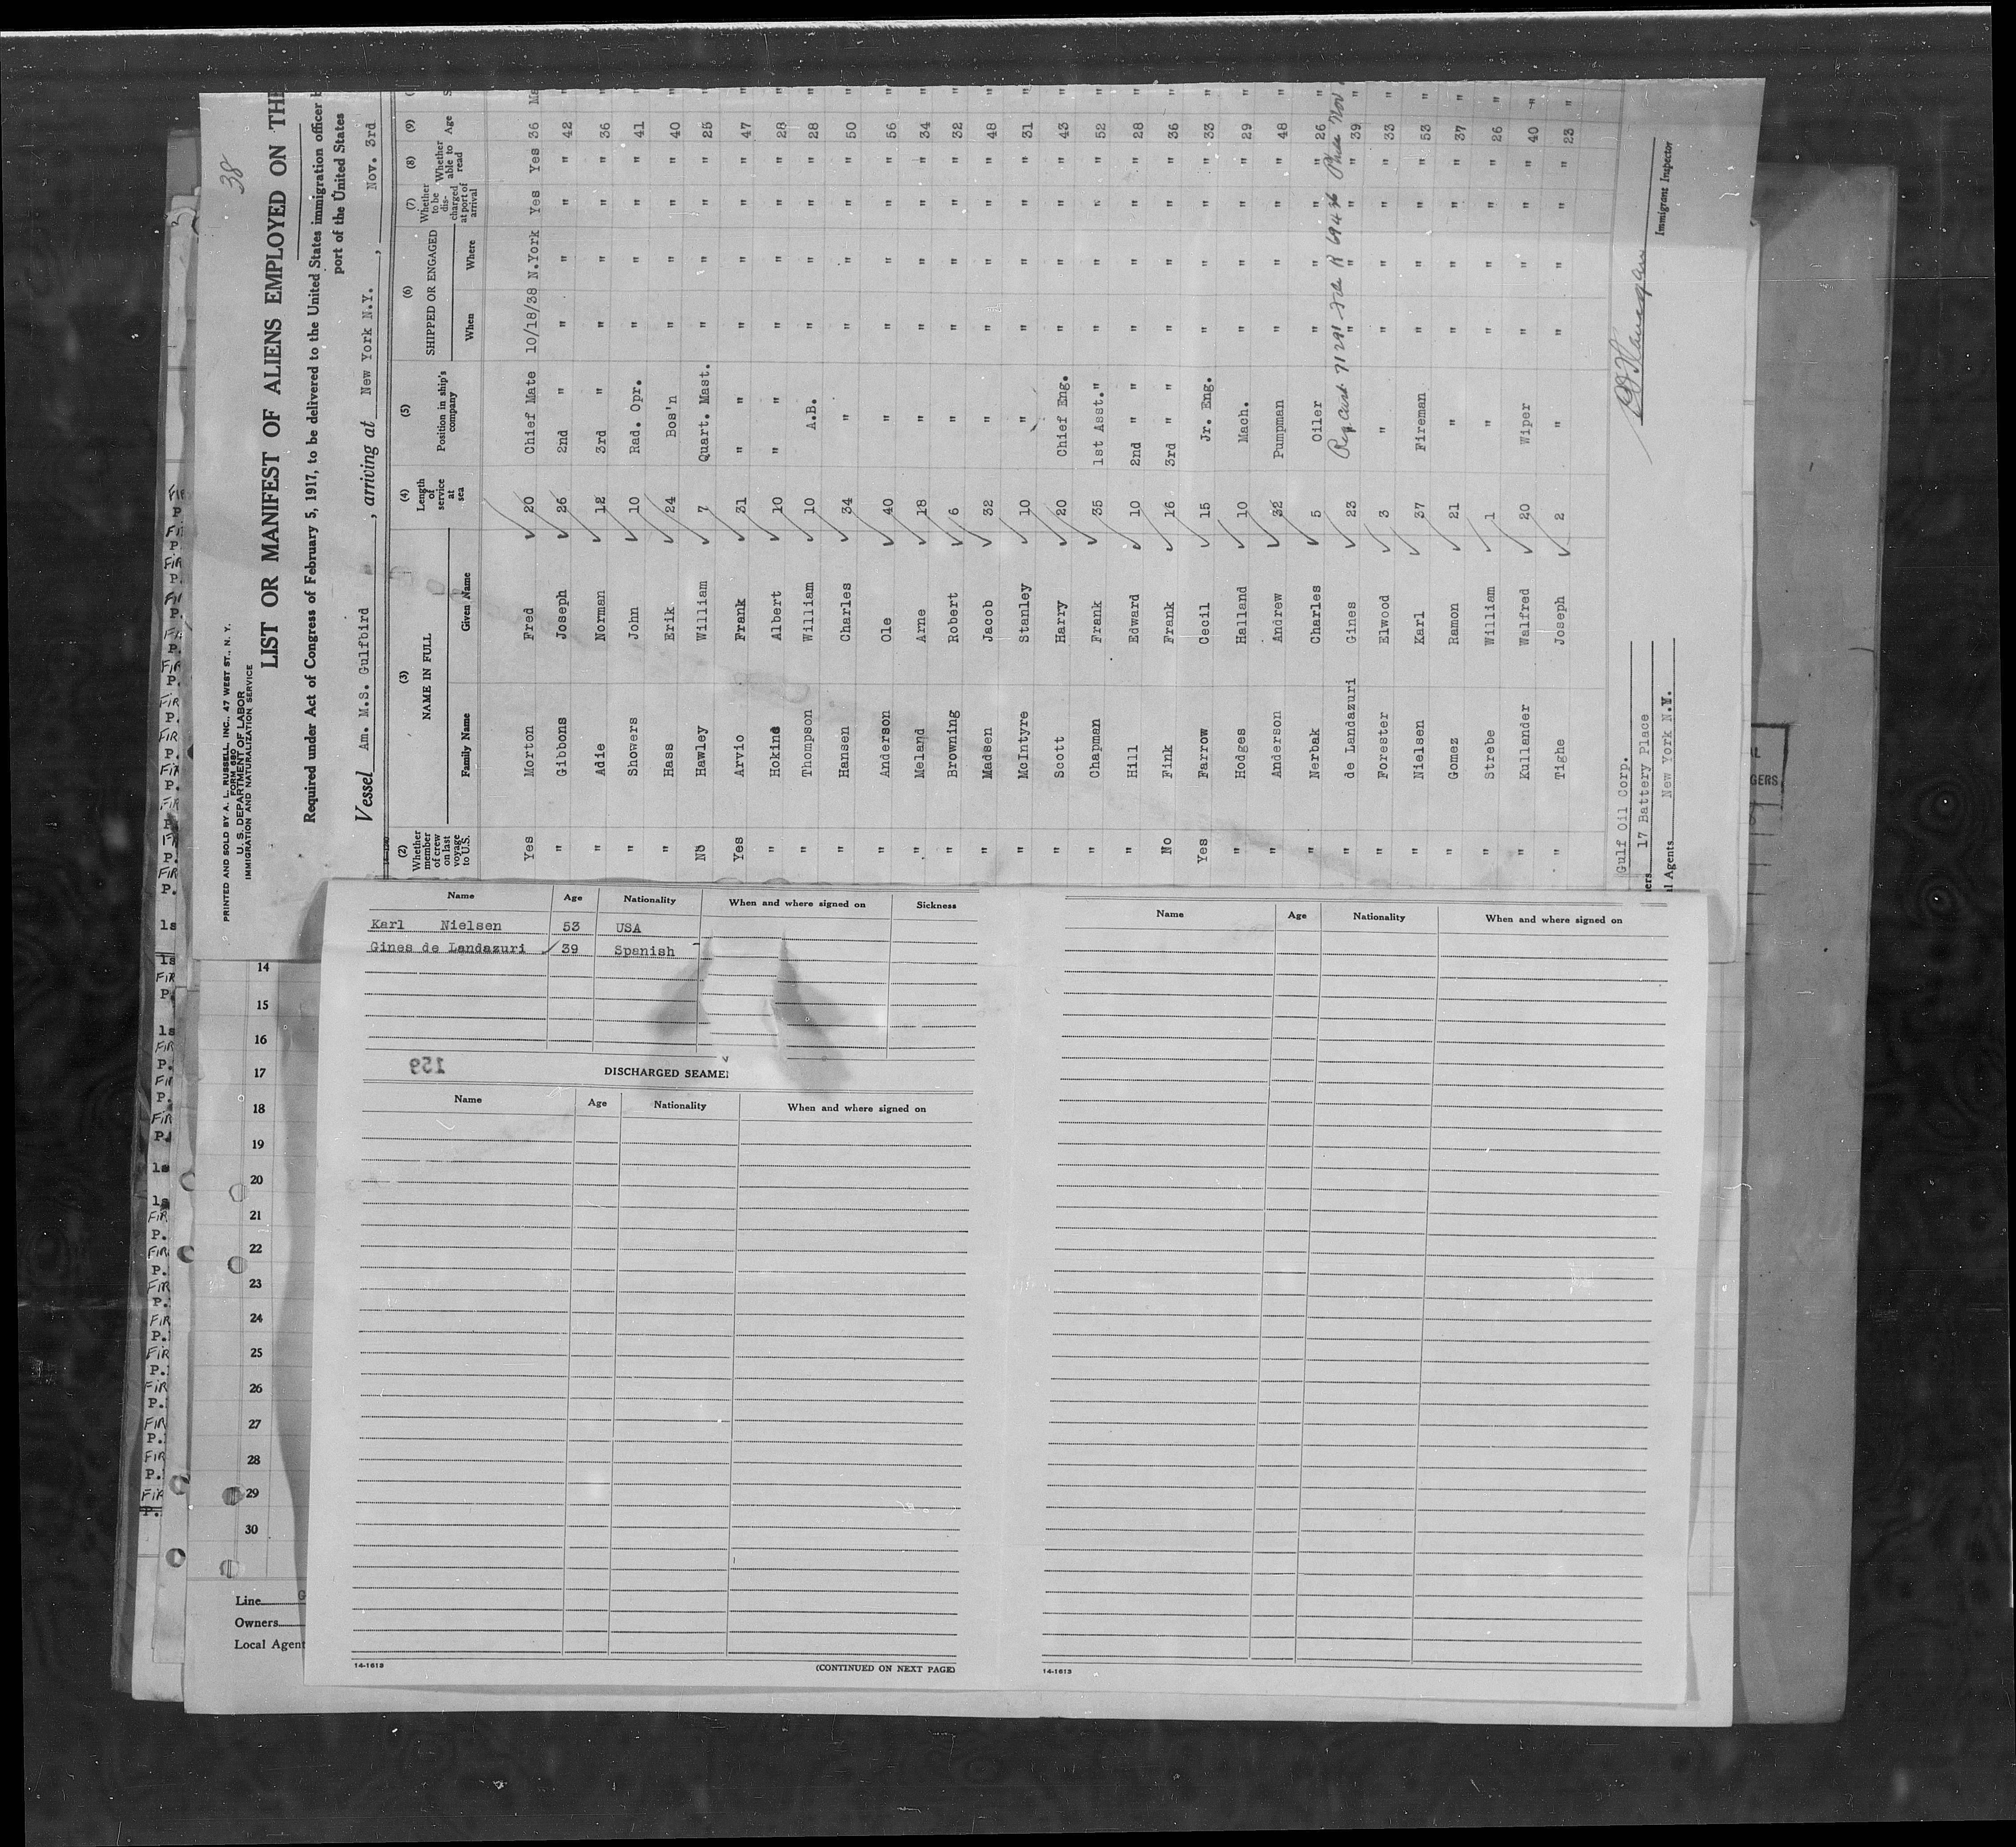 38
PRINTED AND SOLD BY A. L. RUSSELL, INC., 47 WEST ST., N. Y.
FORM 680
U. S. DEPARTMENT OF LABOR
IMMIGRATION AND NATURALIZATION SERVICE
LIST OR MANIFEST OF ALIENS EMPLOYED ON THE
Required under Act of Congress of February 5, 1917, to be delivered to the United States immigration officer b
port of the United States
Vessel Am. M.S. Gulfbird , arriving at New York N.Y. , Nov. 3rd
(2) (3) (4) (5) (6) (7) (8) (9)
Whether member of crew on last voyage to U.S. NAME IN FULL Family Name Given Name Length of service at sea Position in ship's company SHIPPED OR ENGAGED When Where Whether to be discharged at port of arrival Whether able to read Age S
Yes Morton Fred 20 Chief Mate 10/18/38 N.York Yes Yes 36 Ma
" Gibbons Joseph 26 2nd " " " " " 42 "
" Adie Norman 12 3rd " " " " " 36 "
" Showers John 10 Rad. Opr. " " " " 41 "
" Hass Erik 24 Bos'n " " " " 40 "
No Hawley William 7 Quart. Mast. " " " " 25 "
Yes Arvio Frank 31 " " " " " " 47 "
" Hokins Albert 10 " " " " " " 28 "
" Thompson William 10 A.B. " " " " 28 "
" Hansen Charles 34 " " " " " 50 "
" Anderson Ole 40 " " " " " 56 "
" Meland Arne 18 " " " " " 34 "
" Browning Robert 6 " " " " " 32 "
" Madsen Jacob 32 " " " " " 48 "
" McIntyre Stanley 10 " " " " " 31 "
" Scott Harry 20 Chief Eng. " " " " 43 "
" Chapman Frank 35 1st Asst." " " " " 52 "
" Hill Edward 10 2nd " " " " " " 28 "
No Fink Frank 16 3rd " " " " " " 36 "
Yes Farrow Cecil 15 Jr. Eng. " " " " 33 "
" Hodges Halland 10 Mach. " " " " 29 "
" Anderson Andrew 32 Pumpman " " " " 48 "
" Nerbak Charles 5 Oiler " " " " 26 "
" de Landazuri Gines 23 " " " " 39 "
" Forester Elwood 3 " " " " " 33 "
" Nielsen Karl 37 Fireman " " " " 53 "
" Gomez Ramon 21 " " " " " 37 "
" Strebe William 1 " " " " " 26 "
" Kullander Walfred 20 Wiper " " " " 40 "
" Tighe Joseph 2 " " " " " 23 "
Gulf Oil Corp.
ners 17 Battery Place
al Agents New York N.Y.
Immigrant Inspector
Name Age Nationality When and where signed on Sickness
Karl Nielsen 53 USA
Gines de Landazuri 39 Spanish
159
DISCHARGED SEAME
Name Age Nationality When and where signed on
14-1613
(CONTINUED ON NEXT PAGE)
Name Age Nationality When and where signed on
14-1613
14
15
16
17
18
19
20
21
22
23
24
25
26
27
28
29
30
Line G
Owners
Local Agent
GERS